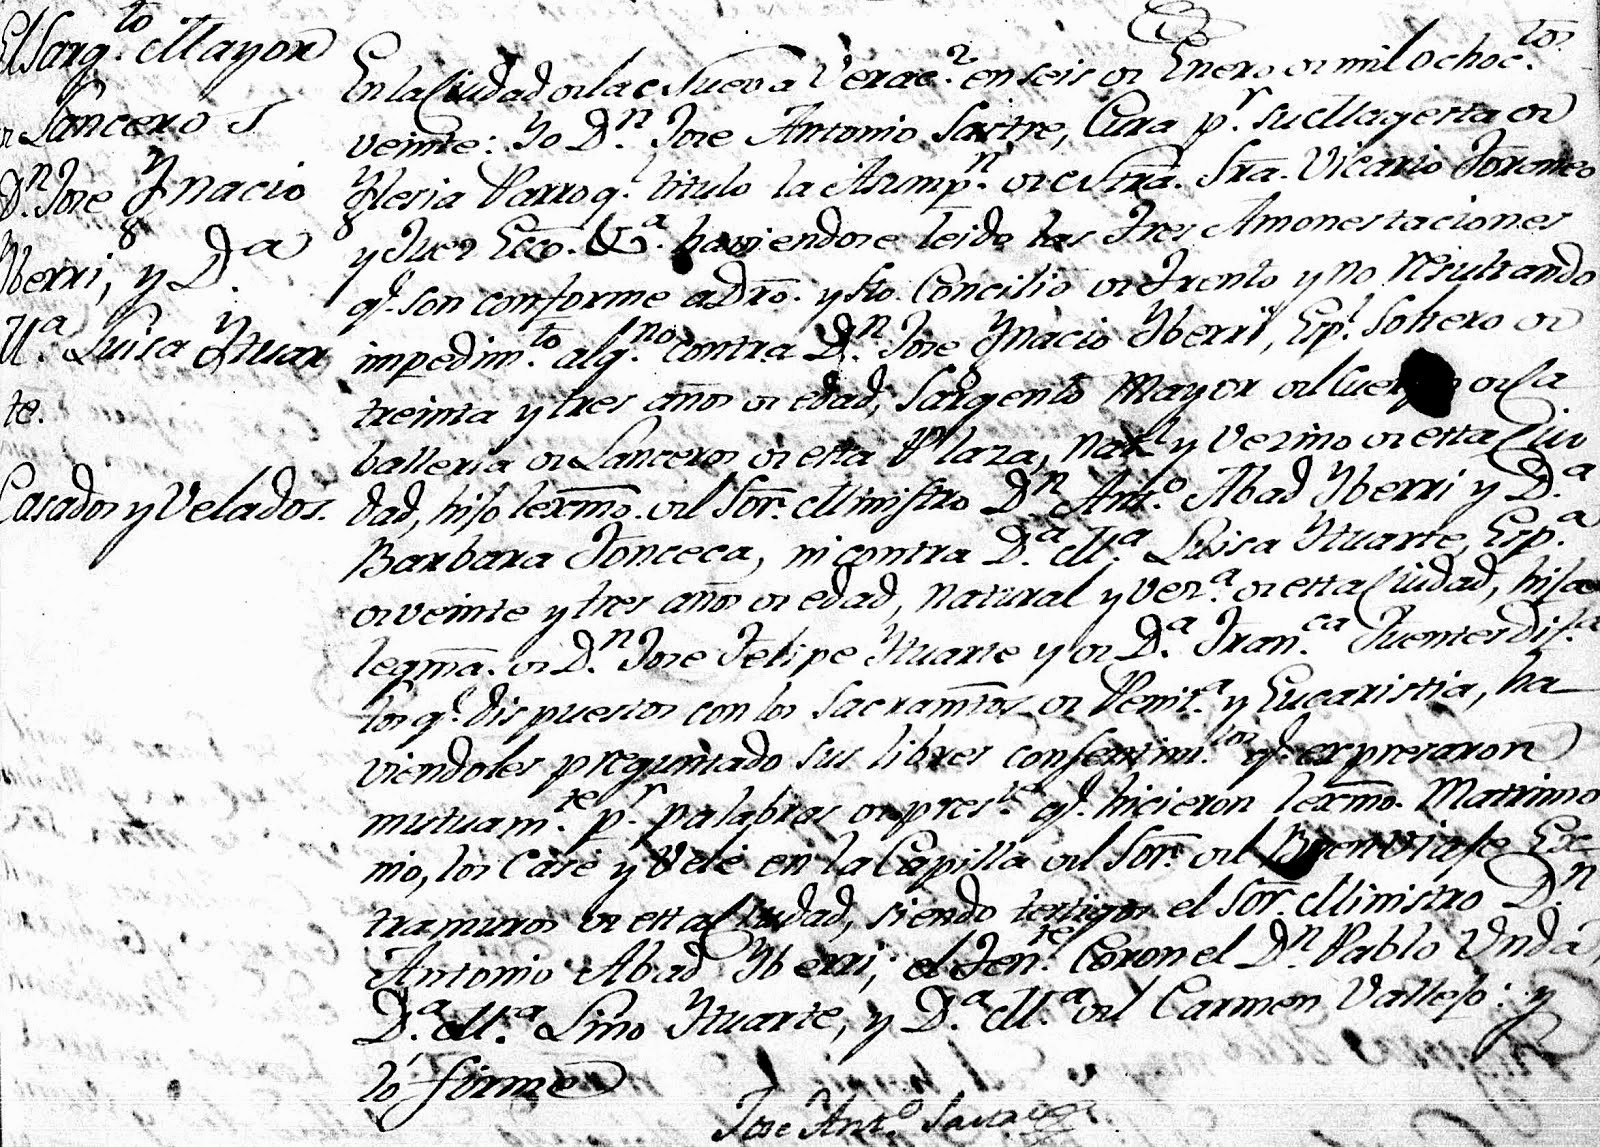 El Sarg.to Mayor
de Lanceros
D.n Jose Ygnacio
Yberri, y D.a
M.a Luisa Ytuar
te.
Casados y Velados.
En la Ciudad de la Nueva Verac.z en seis de Enero de mil ochoc.tos
veinte: Yo D.n Jose Antonio Sastre, Cura p.r su Magestad de
Yglesia Parroq.l titulo la Asump.n de Ntra. Sra. Vicario Foraneo
y Juez Ecco. &.a haviendose leido las tres Amonestaciones
q.e son conforme a Dro. y Sto. Concilio de Trento y no resultando
impedim.to alg.no contra D.n Jose Ygnacio Yberri, Esp.l Soltero de
treinta y tres años de edad, Sargento Mayor del Cuerpo de Ca
balleria de Lanceros de esta Plaza, Nat.l y Vezino de esta Ciu
dad, hijo lexmo. del Sor. Ministro D.n Ant.o Abad Yberri y D.a
Barbara Fonceca, ni contra D.a M.a Luisa Ytuarte, Esp.a
de veinte y tres años de edad, Natural y Vez.a de esta Ciudad, hija
legma. de D.n Jose Felipe Ytuarte y de D.a Fran.ca Fuentes dif.a
los q.e dispuestos con los Sacramtos. de Penit.a y Eucaristia, ha
viendoles preguntado sus libres consentim.tos q.e expresaron
mutuam.te p.r palabras de pres.te q.e hicieron lexmo. Matrimo
nio, los Casé y Velé en la Capilla del Sor. del Buen Viaje Ex
tramuros de esta Ciudad, siendo testigos el Sor. Ministro D.n
Antonio Abad Yberri, el Ten.te Coronel D.n Pablo Unda,
D.a M.a Lino Ytuarte, y D.a M.a del Carmen Vallejo: y
lo firmé
Jose Ant.o Sastre